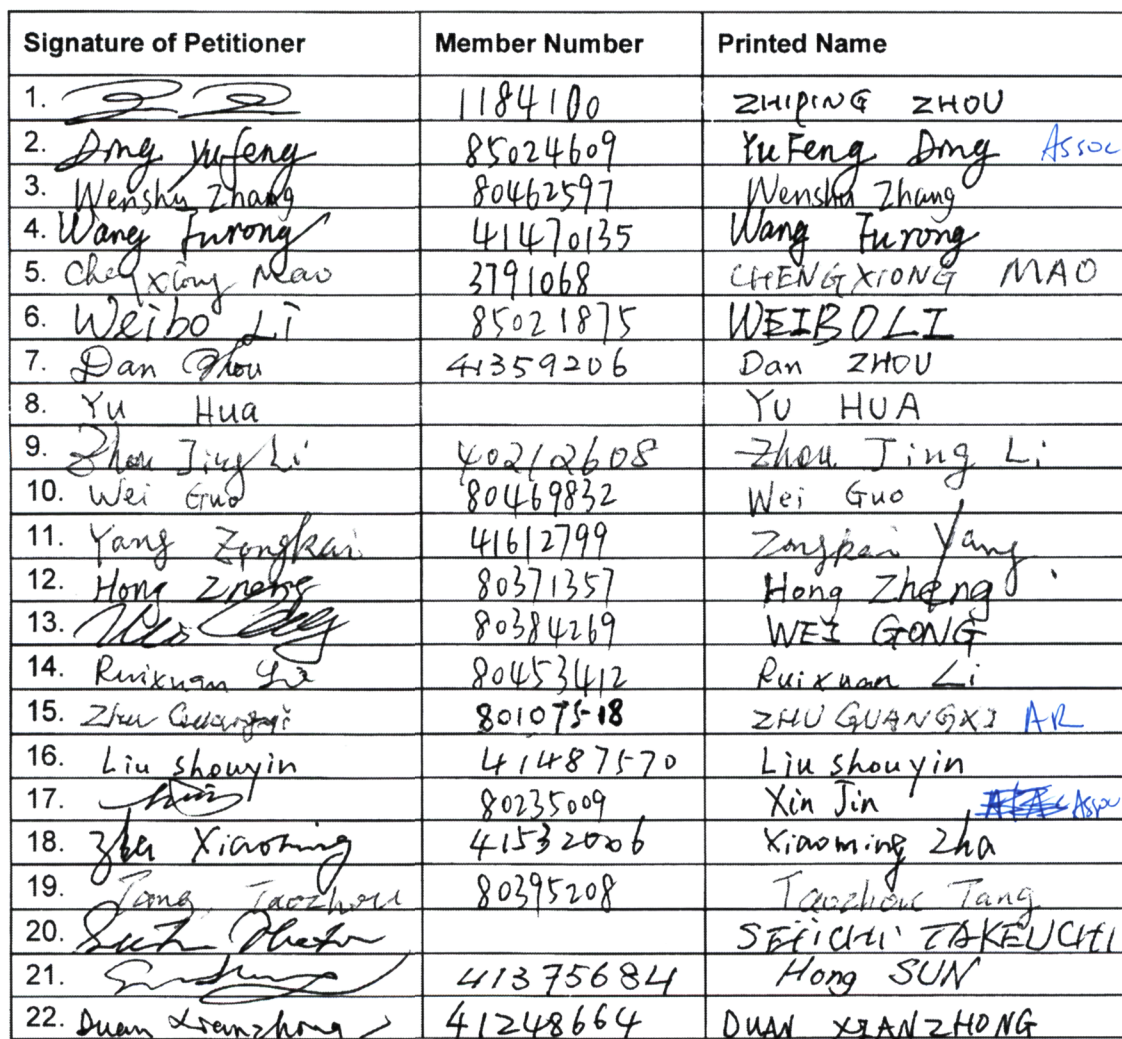 Signature of Petitioner Member Number Printed Name
1. 1184100 ZHIPING ZHOU
2. Dong Yufeng 85024609 YuFeng Dong Assoc
3. Wenshu Zhang 80462597 Wenshu Zhang
4. Wang Furong 41470135 Wang Furong
5. Chengxiong Mao 3791068 CHENGXIONG MAO
6. Weibo Li 85021875 WEIBO LI
7. Dan Zhou 41359206 Dan ZHOU
8. Yu Hua YU HUA
9. Zhou Jing Li 40212608 Zhou Jing Li
10. Wei Guo 80469832 Wei Guo
11. Yang Zongkai 41612799 Zongkai Yang
12. Hong Zheng 80371357 Hong Zheng
13. 80384269 WEI GONG
14. Ruixuan Li 80453412 Ruixuan Li
15. Zhu Guangxi 80107518 ZHU GUANGXI AR
16. Liu shouyin 41487570 Liu shouyin
17. 80235009 Xin Jin Assoc
18. Zha Xiaoming 41532006 Xiaoming Zha
19. Tang Taozhou 80395208 Taozhou Tang
20. SEIICHI TAKEUCHI
21. 41375684 Hong SUN
22. Duan Xianzhong 41248664 DUAN XIANZHONG